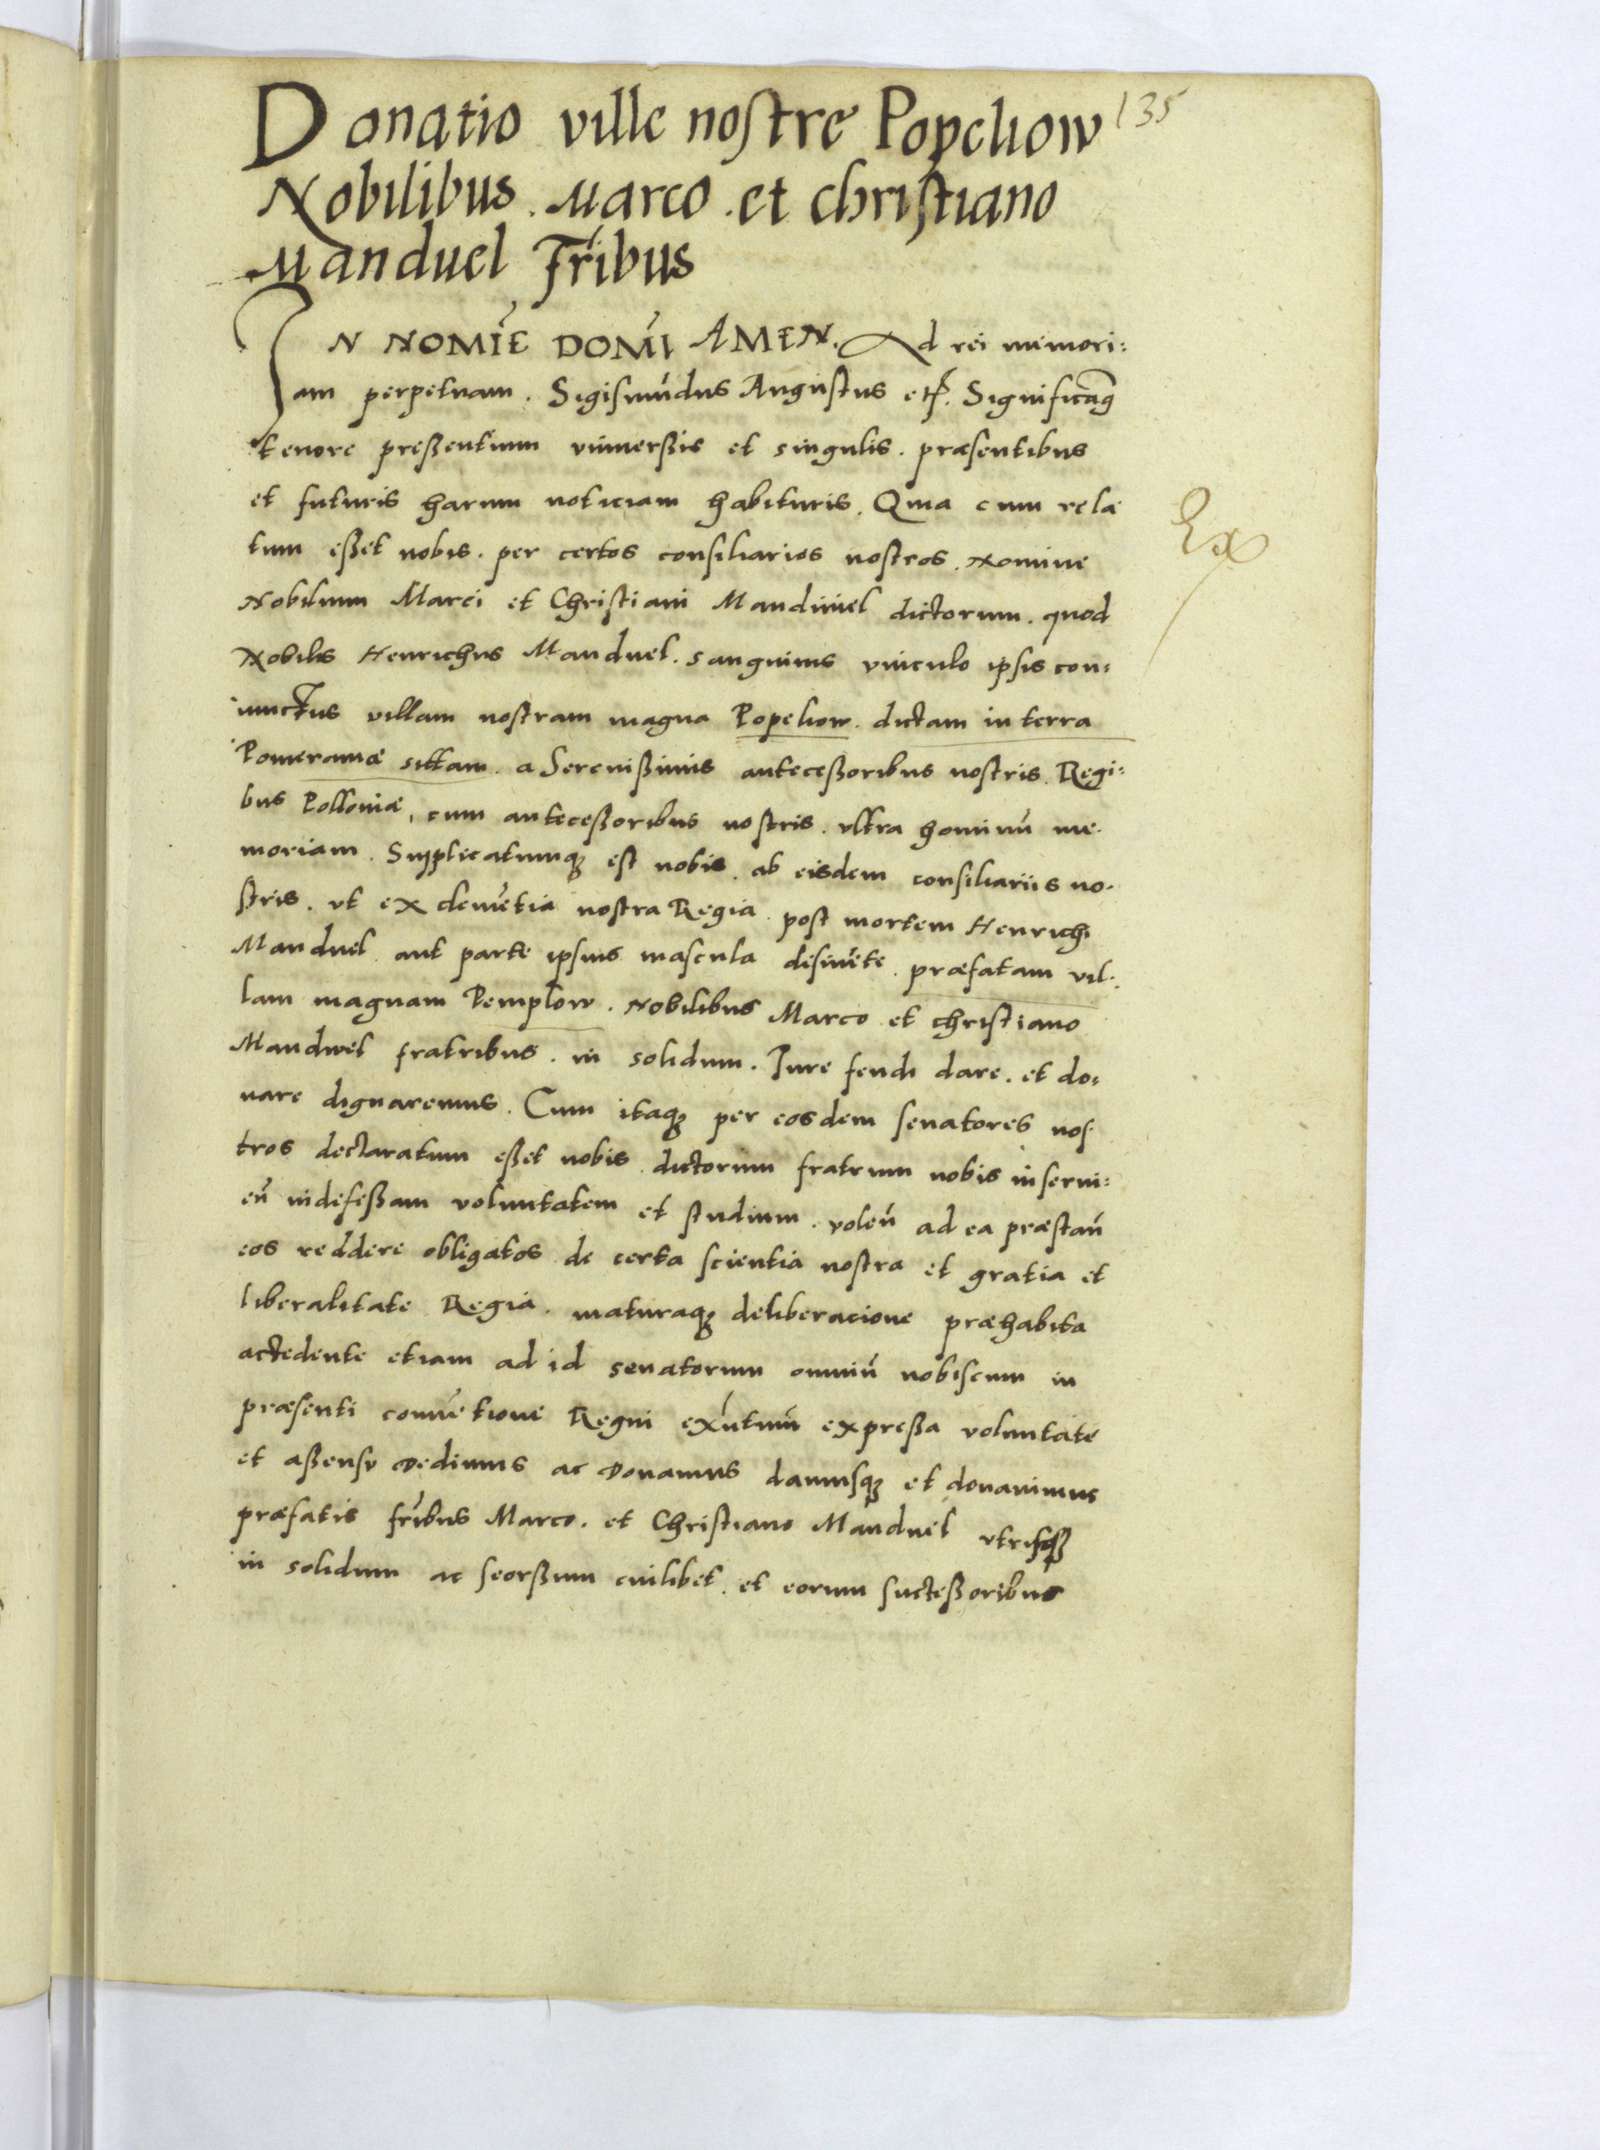 Donatio ville nostre Popeliow 135
Nobilibus. Marco. et Christiano
Manduel Fr̃ibus
IN NOMIE͂ DOMI͂ AMEN. Ad rei memori:
am perpetuam. Sigismũdus Augustus etc. Significamꝰ
tenore preßentium vniuerßis et singulis. præsentibus
et futuris harum noticiam habituris. Quia cum rela
tum eßet nobis. per certos consiliarios nostros. Nomine
Nobilium Marci et Christiani Manduuel dictorum. quod
Nobilis Henrichus Manduel. sanguinis vinculo ipsis con:
iunctus villam nostram magna Popeliow. dictam in terra
Pomeraniæ sittam. a Serenißimis anteceßoribus nostris. Regi:
bus Polloniæ, cum anteceßoribus nostris. vltra hominũ me.
moriam. Supplicatumqꝫ est nobis. ab eisdem consiliariis no.
stris. vt ex clemẽtia nostra Regia. post mortem Henrichi
Manduel. aut parte ipsius mascula desinẽte. præfatam vil.
lam magnam Pemplow. Nobilibus Marco et christiano
Mandwel fratribus. in solidum. Iure feudi dare. et do:
nare dignaremus. Cum itaqꝫ per eosdem senatores nos
tros declaratum eßet nobis. dictorum fratrum nobis inserui:
eñ indefeßam voluntatem et studium. voleñ ad ea præstañ
eos reddere obligatos de certa scientia nostra et gratia et
liberalitate Regia. maturaqꝫ deliberacione præhabita
accedente etiam ad id senatorum omniũ nobiscum in
præsenti conuẽtione Regni exñtium expreßa voluntate
et aßensu dedimus ac donamus damusqꝫ et donauimus
præfatis fr̃ibus Marco. et Christiano Manduel vtrisqꝫ
in solidum ac seorßum cuilibet. et eorum succeßoribus
Ex